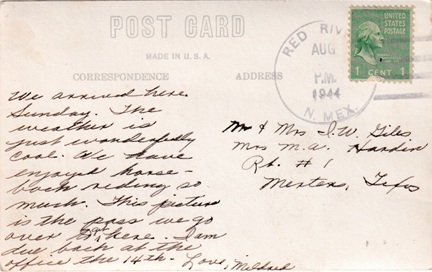 POST CARD
MADE IN U.S.A.
CORRESPONDENCE
ADDRESS
RED RIV
AUG
P.M.
1944
N. MEX.
UNITED STATES POSTAGE
1 CENT 1
We arrived here
Sunday. The
weather is
just wonderfully
cool. We have
enjoyed horse-
back riding so
much. This picture
is the pass we go
over to get here. I am
due back at the
office the 14th. Love, Mildred
Mr & Mrs I. W. Giles
Mrs M. A. Hardin
Rt. # 1
Mertens, Texas